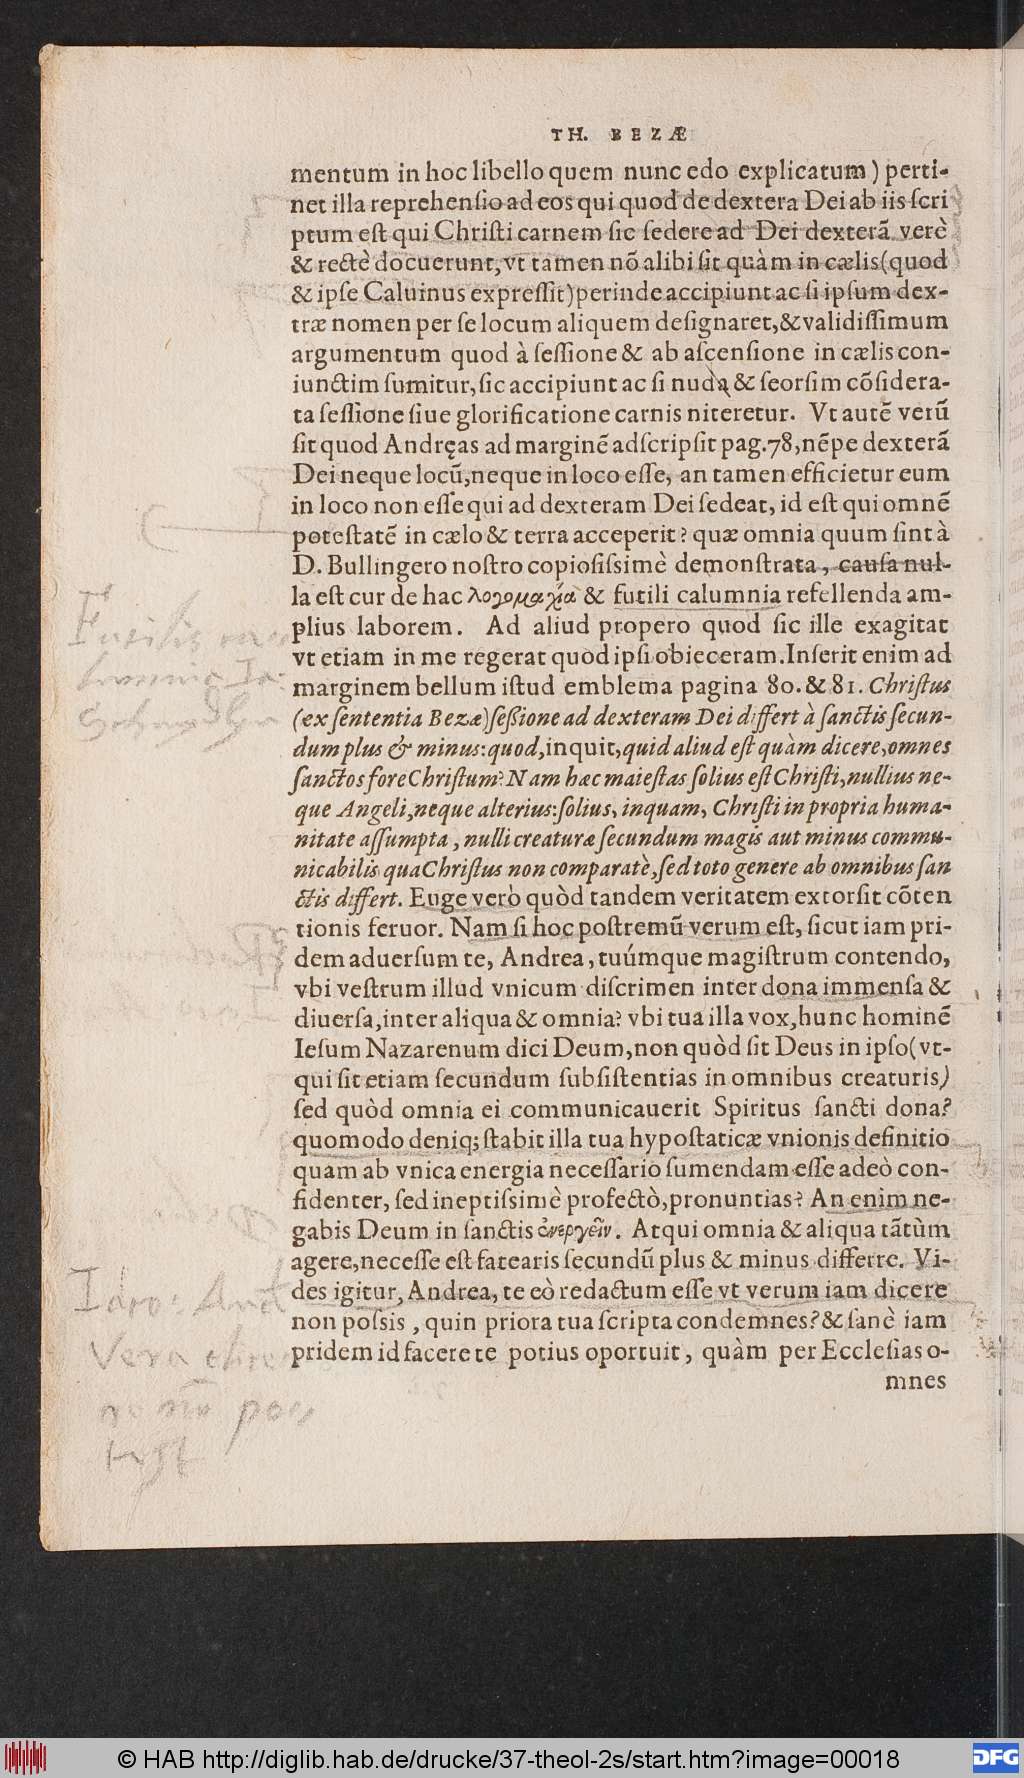 TH. BEZÆ
mentum in hoc libello quem nunc edo explicatum) perti-
net illa reprehensio ad eos qui quod de dextera Dei ab iis scri
ptum est qui Christi carnem sic sedere ad Dei dexterã verè
& rectè docuerunt, vt tamen nõ alibi sit quàm in cælis (quod
& ipse Caluinus expressit) perinde accipiunt ac si ipsum dex-
træ nomen per se locum aliquem designaret, & validissimum
argumentum quod à sessione & ab ascensione in cælis con-
iunctim sumitur, sic accipiunt ac si nuda & seorsim cõsidera-
ta sessione siue glorificatione carnis niteretur. Vt autẽ verũ
sit quod Andręas ad marginẽ adscripsit pag. 78, nẽpe dexterã
Dei neque locũ, neque in loco esse, an tamen efficietur eum
in loco non esse qui ad dexteram Dei sedeat, id est qui omnẽ
potestatẽ in cælo & terra acceperit? quæ omnia quum sint à
D. Bullingero nostro copiosissimè demonstrata, causa nul-
la est cur de hac λογομαχίᾳ & futili calumnia refellenda am-
plius laborem. Ad aliud propero quod sic ille exagitat
vt etiam in me regerat quod ipsi obieceram. Inserit enim ad
marginem bellum istud emblema pagina 80. & 81. Christus
(ex sententia Bezæ) sessione ad dexteram Dei differt à sanctis secun-
dum plus & minus: quod, inquit, quid aliud est quàm dicere, omnes
sanctos fore Christum? Nam hæc maiestas solius est Christi, nullius ne-
que Angeli, neque alterius: solius, inquam, Christi in propria huma-
nitate assumpta, nulli creaturæ secundum magis aut minus commu-
nicabilis qua Christus non comparatè, sed toto genere ab omnibus san
ctis differt. Euge verò quòd tandem veritatem extorsit cõten
tionis feruor. Nam si hoc postremũ verum est, sicut iam pri-
dem aduersum te, Andrea, tuúmque magistrum contendo,
vbi vestrum illud vnicum discrimen inter dona immensa &
diuersa, inter aliqua & omnia? vbi tua illa vox, hunc hominẽ
Iesum Nazarenum dici Deum, non quòd sit Deus in ipso (vt-
qui sit etiam secundum subsistentias in omnibus creaturis)
sed quòd omnia ei communicauerit Spiritus sancti dona?
quomodo deniq; stabit illa tua hypostaticæ vnionis definitio
quam ab vnica energia necessario sumendam esse adeò con-
fidenter, sed ineptissimè profectò, pronuntias? An enim ne-
gabis Deum in sanctis ἐνεργεῖν. Atqui omnia & aliqua tãtùm
agere, necesse est fatearis secundũ plus & minus differre. Vi-
des igitur, Andrea, te eò redactum esse vt verum iam dicere
non possis, quin priora tua scripta condemnes? & sanè iam
pridem id facere te potius oportuit, quàm per Ecclesias o-
mnes
Futilis
© HAB http://diglib.hab.de/drucke/37-theol-2s/start.htm?image=00018
DFG